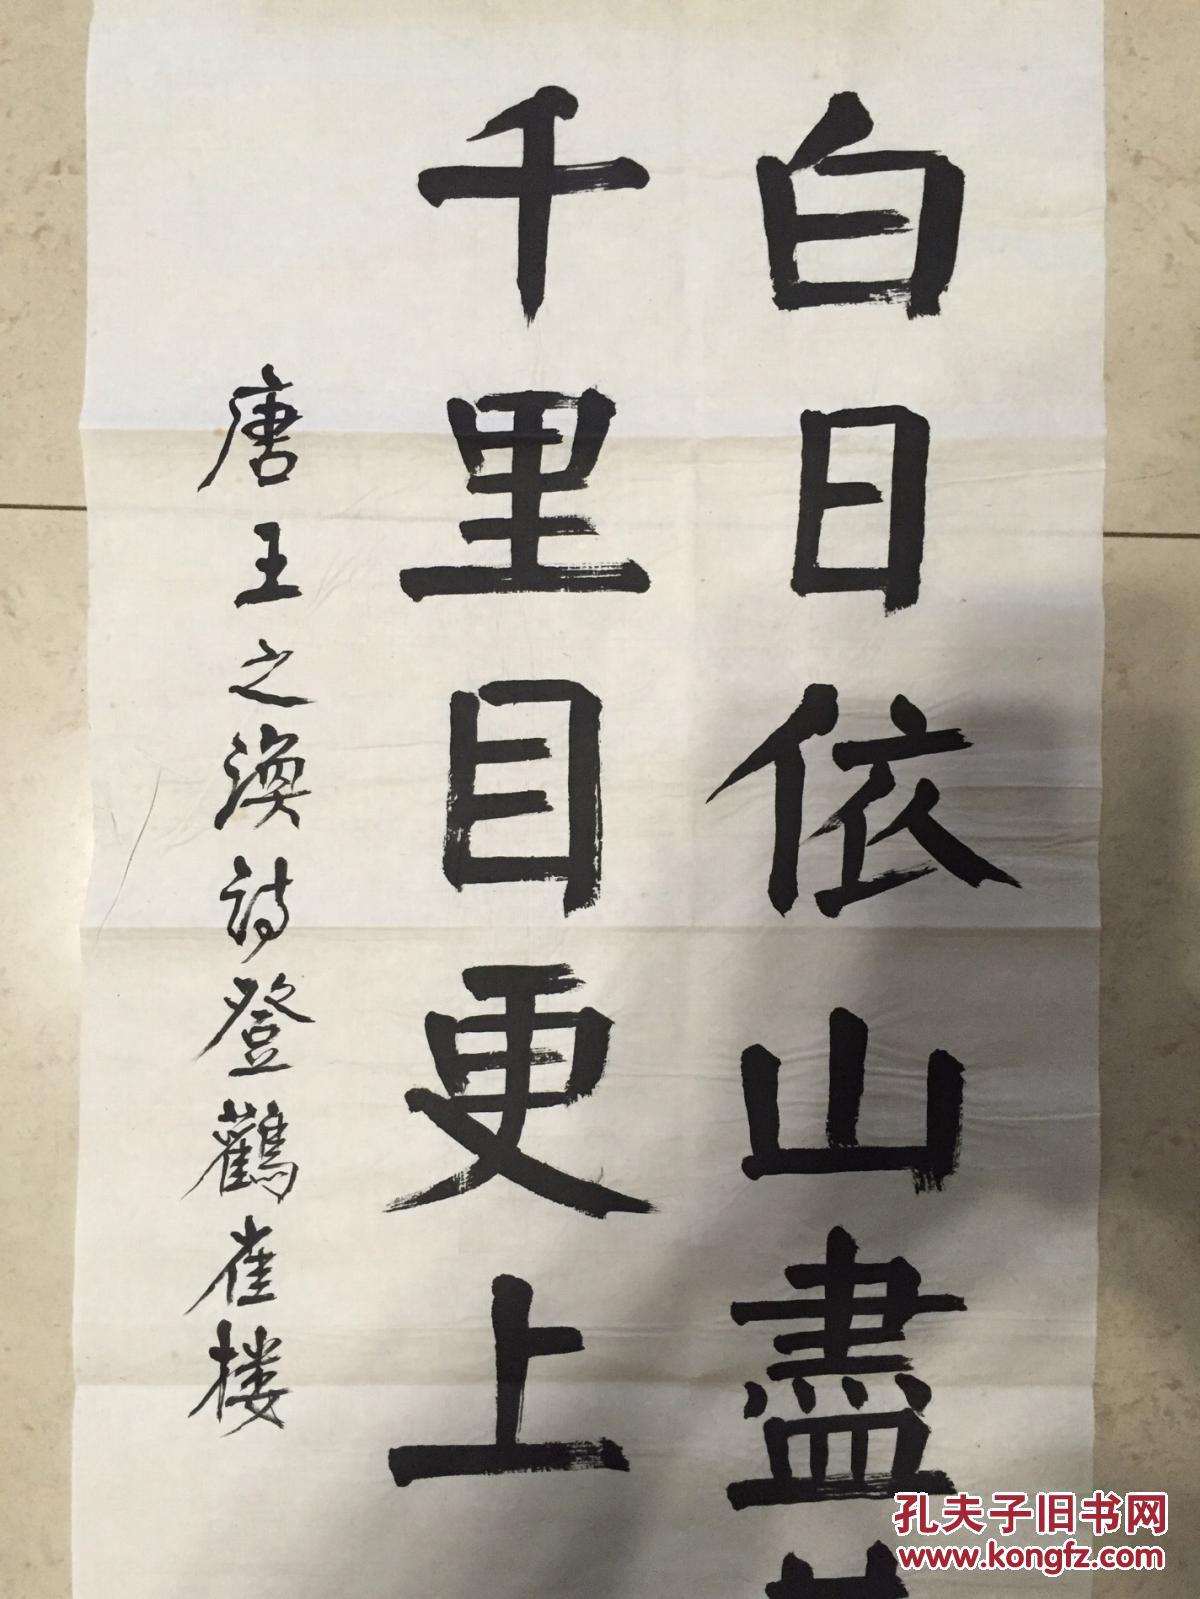 白日依山盡
千里目更上
唐王之渙詩登鸛雀楼
孔夫子旧书网
www.kongfz.com